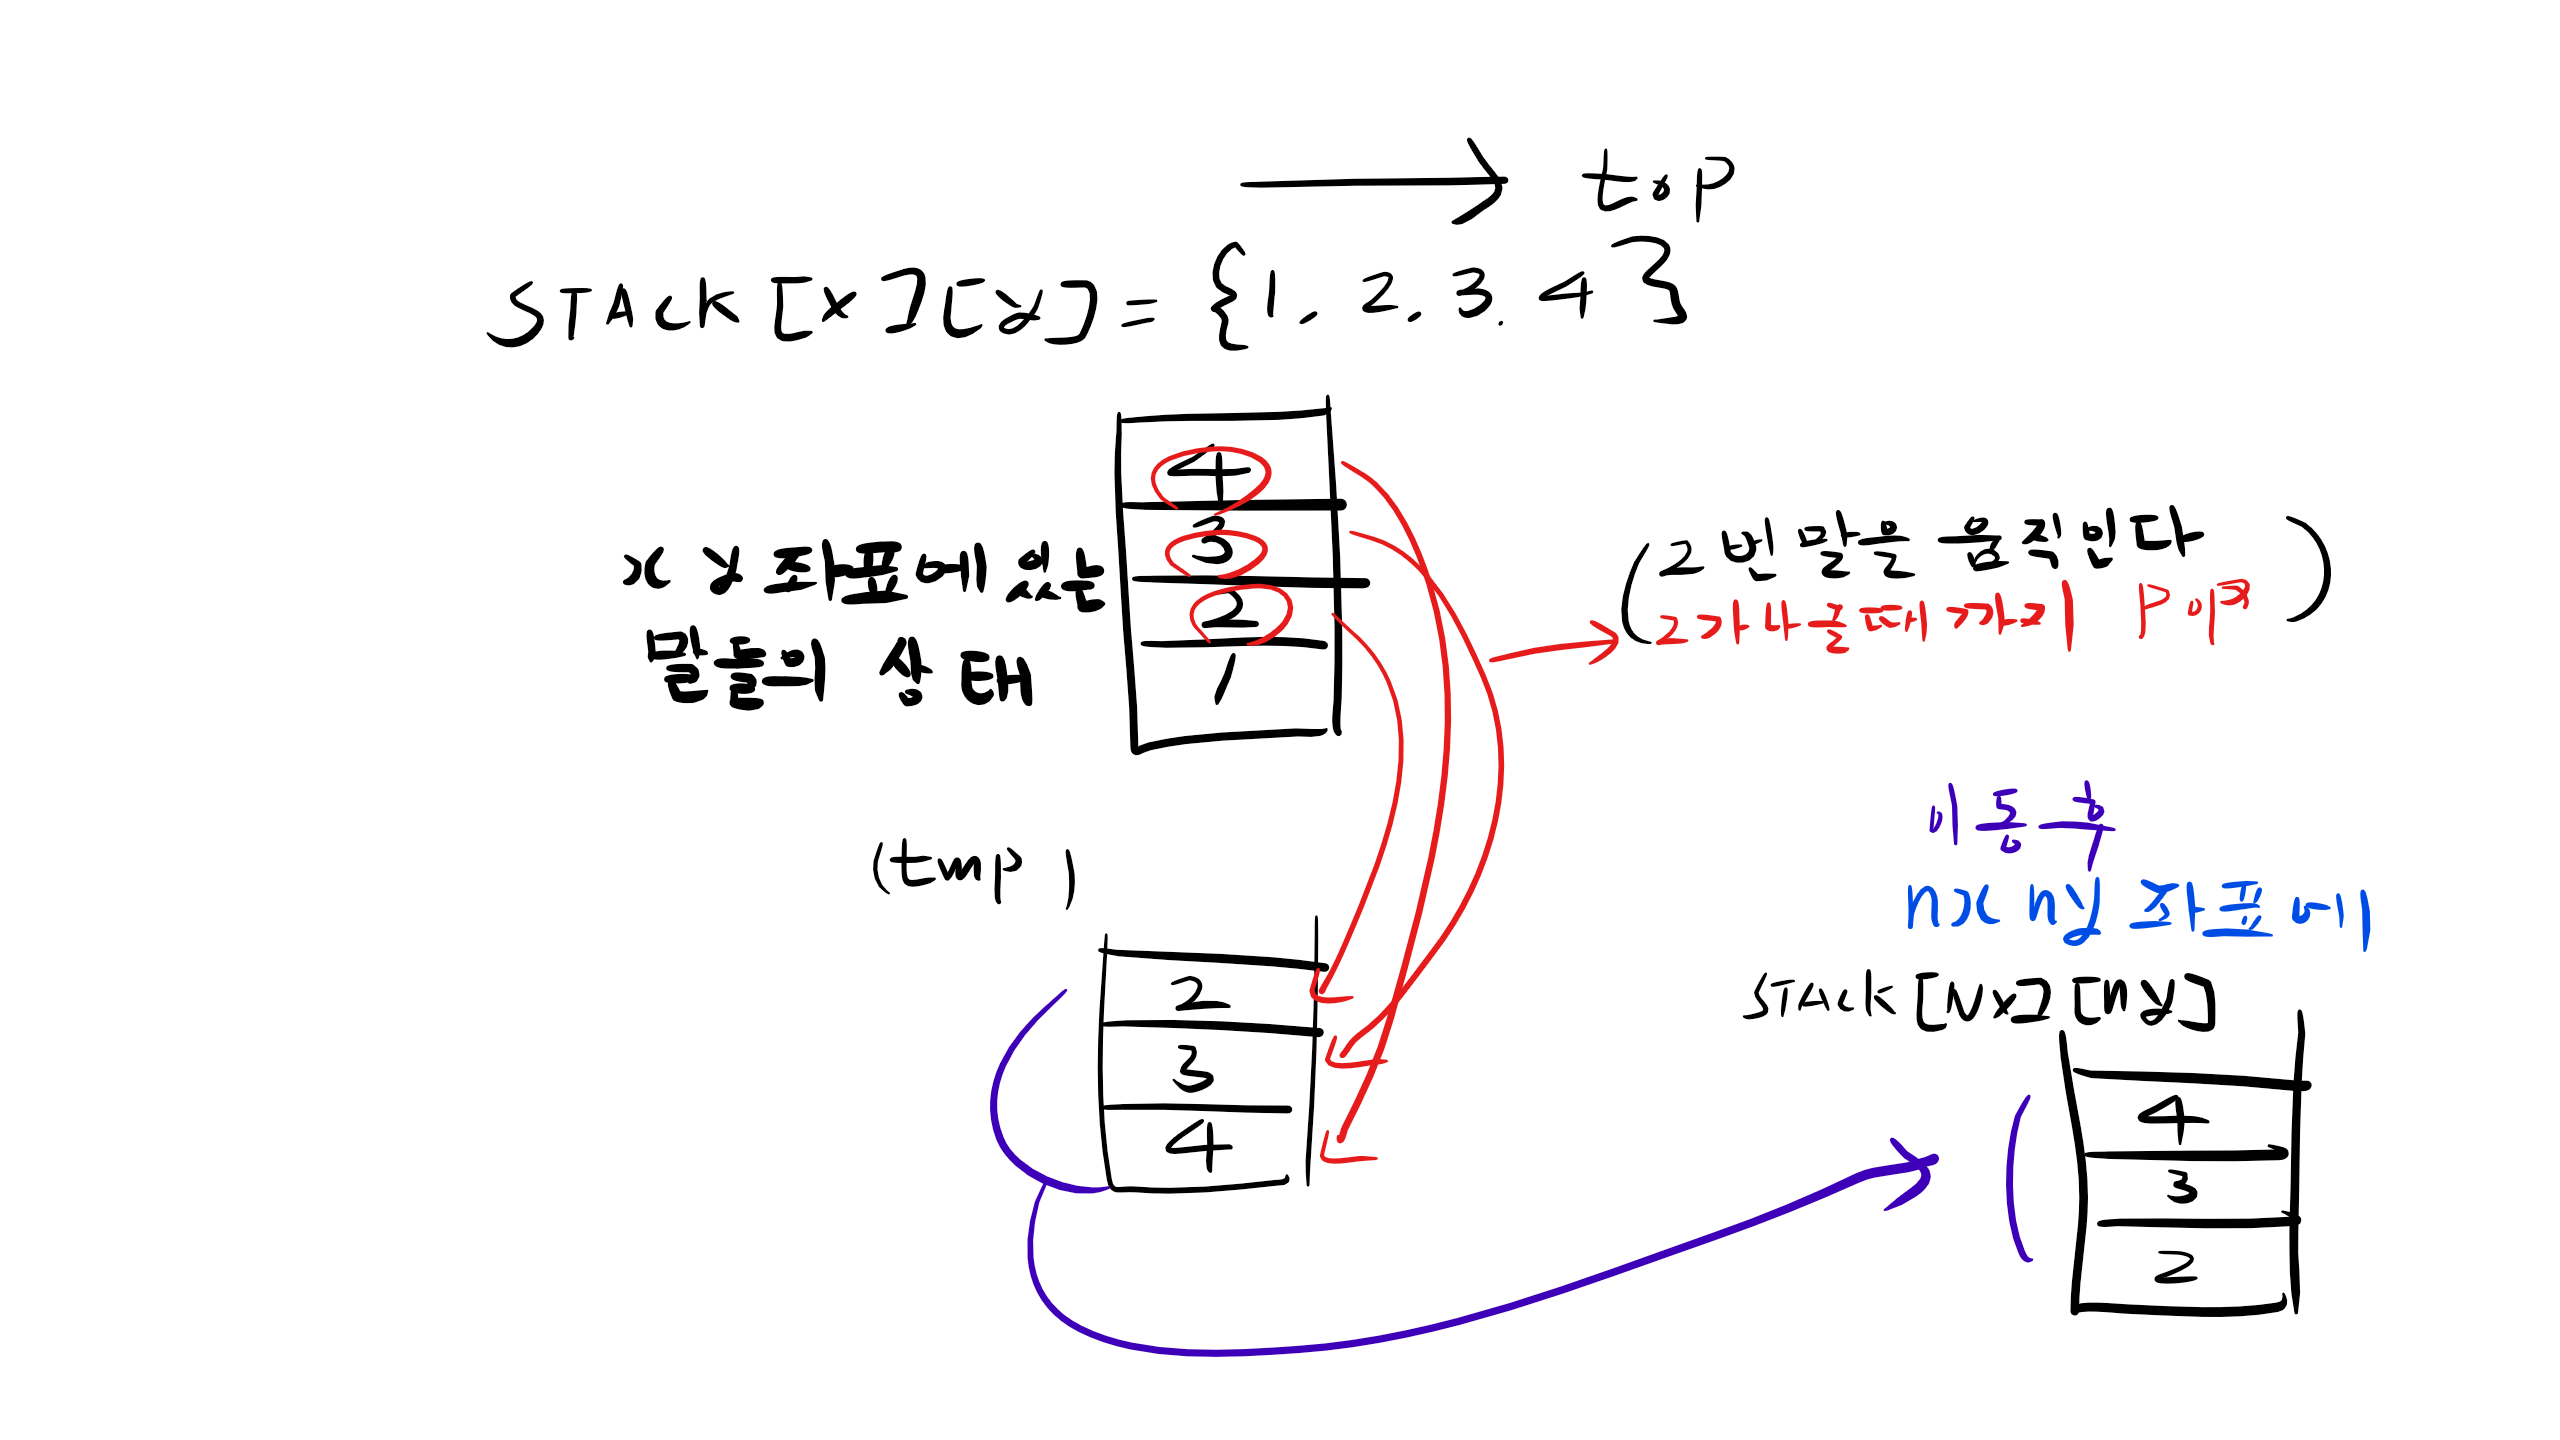 top
STACK [x] [y] = {1, 2, 3. 4}
x y 좌표에 있는
말들의 상태
4
3
2
1
(2번 말을 움직인다)
2가 나올때 까지 pop
(tmp)
2
3
4
이동 후
nx ny 좌표에
STACK [Nx] [ny]
4
3
2